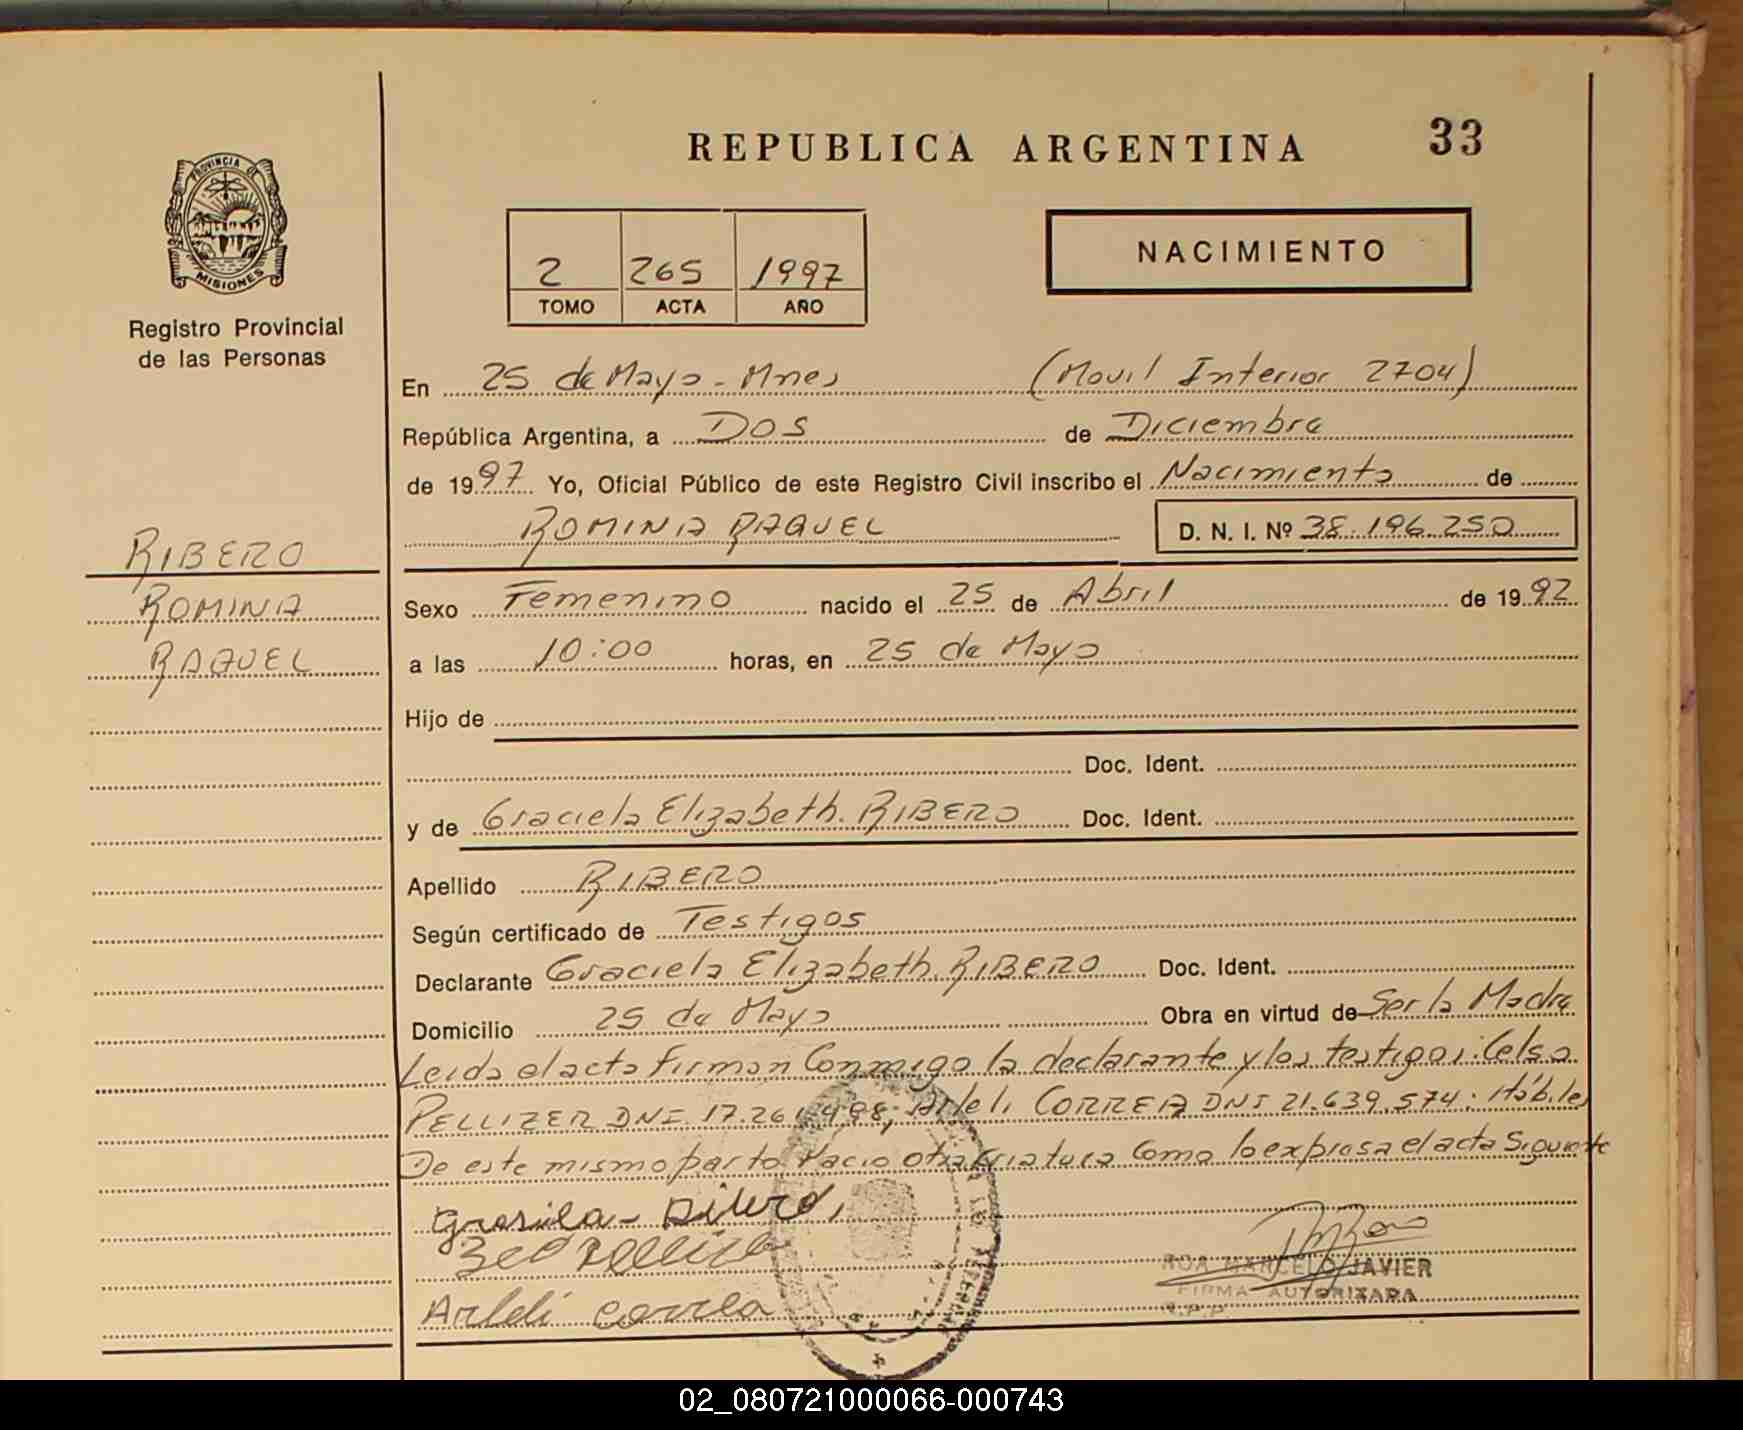 REPUBLICA ARGENTINA
33
PROVINCIA DE
MISIONES
Registro Provincial
de las Personas
2 265 1997
TOMO ACTA AÑO
NACIMIENTO
En 25 de Mayo - Mnes (Movil Interior 2704)
República Argentina, a DOS de Diciembre
de 1997 Yo, Oficial Público de este Registro Civil inscribo el Nacimiento de
ROMINA RAQUEL D. N. I. Nº 38.196.250
RIBERO
ROMINA
RAQUEL
Sexo Femenino nacido el 25 de Abril de 1992
a las 10:00 horas, en 25 de Mayo
Hijo de
Doc. Ident.
y de Graciela Elizabeth RIBERO Doc. Ident.
Apellido RIBERO
Según certificado de Testigos
Declarante Graciela Elizabeth RIBERO Doc. Ident.
Domicilio 25 de Mayo Obra en virtud de Ser la Madre
Leida el acta firman Conmigo la declarante y los testigos: Celso
PELLIZER DNI 17.261.498; Arleli CORREA DNI 21.639.574. Hábiles
De este mismo parto nacio otra criatura como lo expresa el acta Siguiente
ROA MARCELO JAVIER
FIRMA AUTORIZADA
R.P.P.
Arleli Correa
02_080721000066-000743